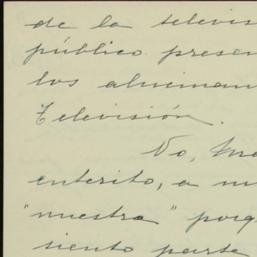 de la televis
público presen
los alueman
Televisión.
No, Ma
enterito, a m
"nuestra" porq
siento parte